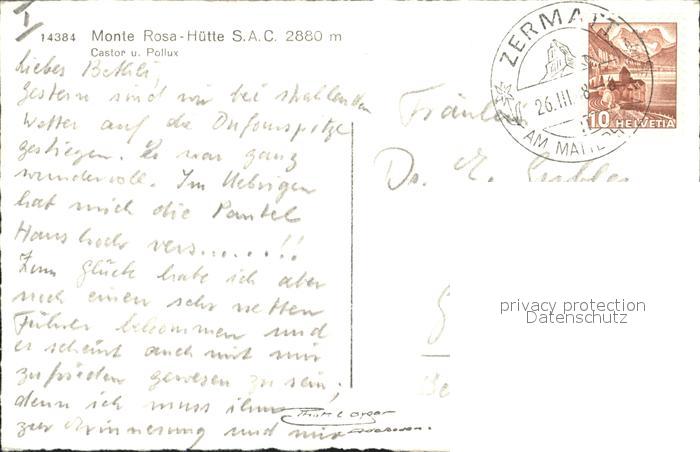 I
14384 Monte Rosa-Hütte S.A.C. 2880 m
Castor u. Pollux
Liebes Bethli,
gestern sind wir bei strahlendem
Wetter auf die Dufourspitze
gestiegen. Es war ganz
wundervoll. Im Uebrigen
hat mich die
Hans hoch vers.....!!
Zum Glück habe ich aber
noch einen sehr netten
Führer bekommen und
er scheint auch mit mir
zufrieden gewesen zu sein;
denn ich muss ihm
zur Erinnerung und mir
ZERMATT
26.III
AM MATTE
10 HELVETIA
Fräulein
Dr. E.
privacy protection
Datenschutz
Be